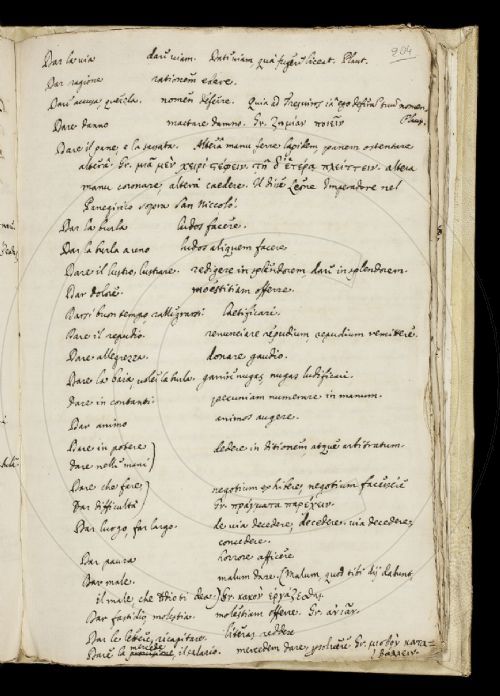 204
Dar la via darū viam. Dati viam, quā fugere liceat. Plaut.
Dar ragione rationem edere.
Dari accusa, querela. nomen deferre. Quia ad Tresviros iā ego deferā tuū nomen.
Plaut.
Dare danno mactare damno. Gr. ζημίαν ποιεῖν
Dare il pane, e la sassata. Alterā manu ferre lapidem, panem ostentare
alterā. Gr. μιᾷ μὲν χειρὶ τῇ δ' ἑτέρᾳ altera
manu coronare, altera caedere. Il disse Leone Imperadore nel
Panegirico sopra San Niccolò.
Dar la burla ludos facere.
Dar la burla a uno ludos aliquem facere
Dare il lustro, lustrare. redigere in splēdorem darū in splendorem.
Dar dolore. moestitiam offerre.
Darsi buon tempo, rallegrarsi laetificari.
Dare il repudio. renunciare repudium repudium remittere.
Dare allegrezza. donare gaudio.
Dare la baia, la burla. garriri nugas, nugas ludificari.
Dare in contanti. pecuniam numerare in manum.
Dar animo animos augere.
Dare in potere
dare nelle mani dedere in ditionem atque arbitratum.
Dare che fare, negotium exhibere, negotium facessere
Dar difficultà Gr. πράγματα παρέχειν.
Dar luogo, far largo. de via decedere, decedere. via decedere,
concedere.
Dar paura horrore afficere
Dar male. malum dare. (Malum, quod tibi dij dabunt,
il male, che Iddio ti dia.) Gr. κακὸν ἐργάζεσθαι.
Dar fastidio, molestia. molestiam offerre. Gr. ἀνιᾶν.
Dar le lettere, ricapitare. literas reddere
Dare la mercede, il salario. mercedem dare, persolvere. Gr. μισθὸν κατα=
βάλλειν.